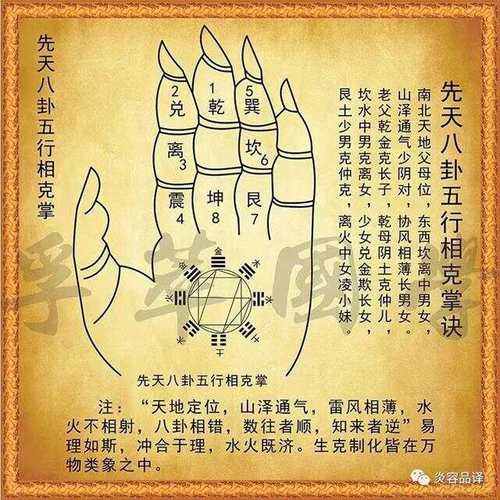 先天八卦五行相克掌诀
南北天地父母位，东西坎离中男女，
山泽通气少阴对，协风相薄长男女。
老父乾金克长子，乾母阴土克仲儿，
坎水中男克离女，少女兑金欺长女，
艮土少男克仲克，离火中女凌小妹。
先天八卦五行相克掌
2 1 5
兑 乾 巽
离 坎
3 6
震 坤 艮
4 8 7
金
土
先天八卦五行相克掌
注：“天地定位，山泽通气，雷风相薄，水
火不相射，八卦相错，数往者顺，知来者逆”易
理如斯，冲合于理，水火既济。生克制化皆在万
物类象之中。
炎容品译